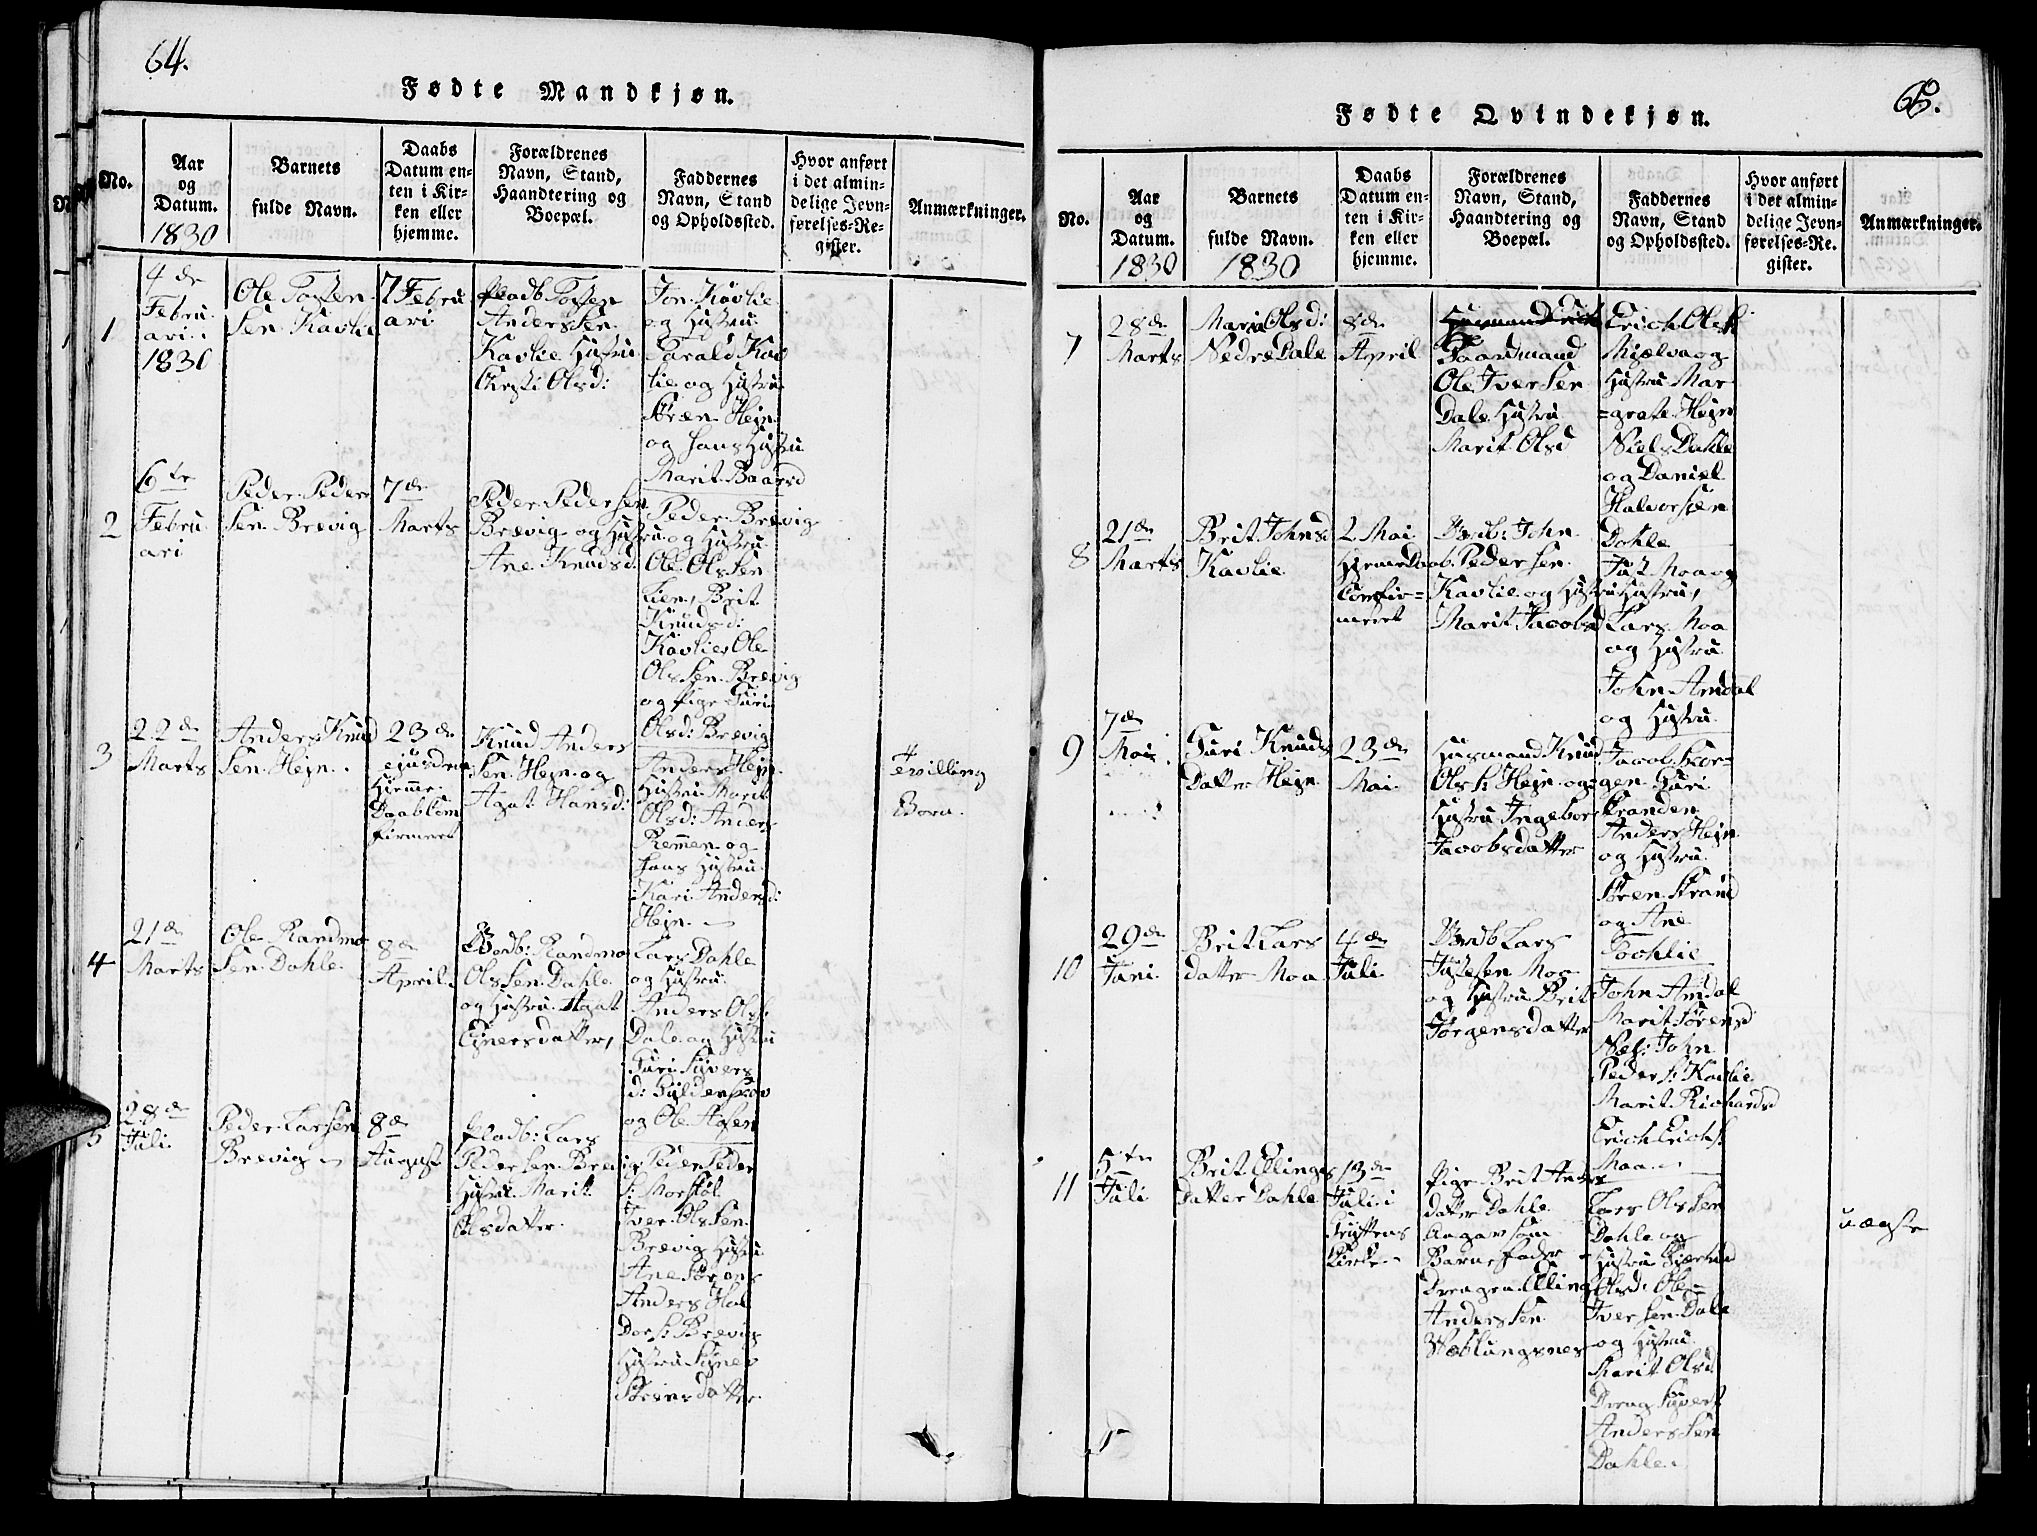 64.
Fødte Mandkjøn.
No.
Aar
og
Datum.
1830
Barnets
fulde Navn.
Daabs
Datum en-
ten i Kir-
ken eller
hjemme.
Forældrenes
Navn, Stand,
Haandtering og
Boepæl.
Faddernes
Navn, Stand
og Opholdssted.
Hvor anført
i det almin-
delige Jevn-
førelses-Re-
gister.
Anmærkninger.
1
4de
Febru
ari
1830
Ole Tosten
Sen Kavlie
7 Febru
ari
Pladb Tosten
Anders Sen
Kavlie Hustru
Kirsti Olsd:
Jon Kavlie
og Hustru
Harald Kav
lie og Hustru
Søren Hejn
og hans Hustru
Marit Baarsd
2
6te
Febru
ari
Peder Peder
Sen Brevig
7de
Marts
Peder Peder Sen
Brevig og Hustru
Ane Knudsd:
Peder Brevig
og Hustru
Ole Ols Sen
Lien, Brit
Knudsd:
Kavlie, Ole
Ols Sen Brevig
og Pige Guri
Olsd: Brevig
3
22de
Marts
Anders Knud
Sen Hejn
23de
ejusdem
Hjemme
Daab Com
firmeret
Knud Anders
Sen Hejn og
Agat Hansd:
Anders Hejn
Hustru Marit
Olsd: Anders
Remmen og
hans Hustru
Kari Andersd:
Hejn
Tevilling
Born
4
21de
Marts
Ole Randmo
Sen Dahle
8de
April
Bordb: Randmo
Ols Sen Dahle
og Hustru Agat
Ejnersdatter,
Lars Dahle
og Hustru
Anders Ols:
Dale og Hustru
Guri Siver
d: Gyldenskov
og Ole Olsen
5
28de
Juli
Peder Larsen
Brevig
8de
August
Pladb: Lars
Peder Sen Brevig
Hustru Marit
Olsdatter
Peder Peder
S: Morstøl
Iver Ols Sen
Brevig Hustru
Ane Sørens
Anders Hal
Dors: Brevig
Hustru
datter
65.
Fødte Qvindekjøn.
No.
Aar
og
Datum.
1830
Barnets
fulde Navn.
1830
Daabs
Datum en-
ten i Kir-
ken eller
hjemme.
Forældrenes
Navn, Stand,
Haandtering og
Boepæl.
Faddernes
Navn, Stand
og Opholdssted.
Hvor anført
i det almin-
delige Jevn-
førelses-Re-
gister.
Anmærkninger.
7
28de
Marts
Mari Olsd:
Nedre Dale
8de
April
Gaardmand
Ole Iver Sen
Dale Hustru
Marit Olsd
Erich Ols:
Mjelva og
Hustru Mar
=grete Hejn
Niels Dahle
og Daniel
Halvorsen
Dahle
8
21de
Marts
Brit Johnsd
Kavlie
2 Mai
Hjeme Daab
Comfir=
meret
Bordb: John
Peder Sen
Kavlie og Hustru
Marit Jacobsd
Just Moa og
Hustru,
Lars Moa
og Hustru
John Amdal
og Hustru
9
7de
Mai
Guri Knuds
Datter Hejn
23de
Mai
Husmand Knud
Ols S: Hejn og
Hustru Ingebor
Jacobsdatter
Jacob Skor=
gen Guri
Stranden
Anders Hejn
og Hustru
Søren Strand
og Ane
Soohlie
10
29de
Juni
Brit Lars
datter Moa
4de
Juli
Bordb Lars
Justesen Moa
og Hustru Brit
Jørgensdatter
John Amdal
Marit Sørensd
Næs: John
Peder S: Kavlie
Marit Richardsd
Erich Erichs:
Moa
11
5te
Juli
Brit Ellings
Datter Dahle
13de
Juli i
Gryttens
Kirke
Pige Brit Anders
datter Dahle
Angav som
Barnefader
Drengen Elling
Anders Sen
Veblungsnes
Lars Ols Sen
Dahle og
Hustru Gjertrud
Olsd: Ole
Iver Sen Dale
og Hustru
Marit Olsd
Dreng Sivert
Anders Sen
Dahle
uægte